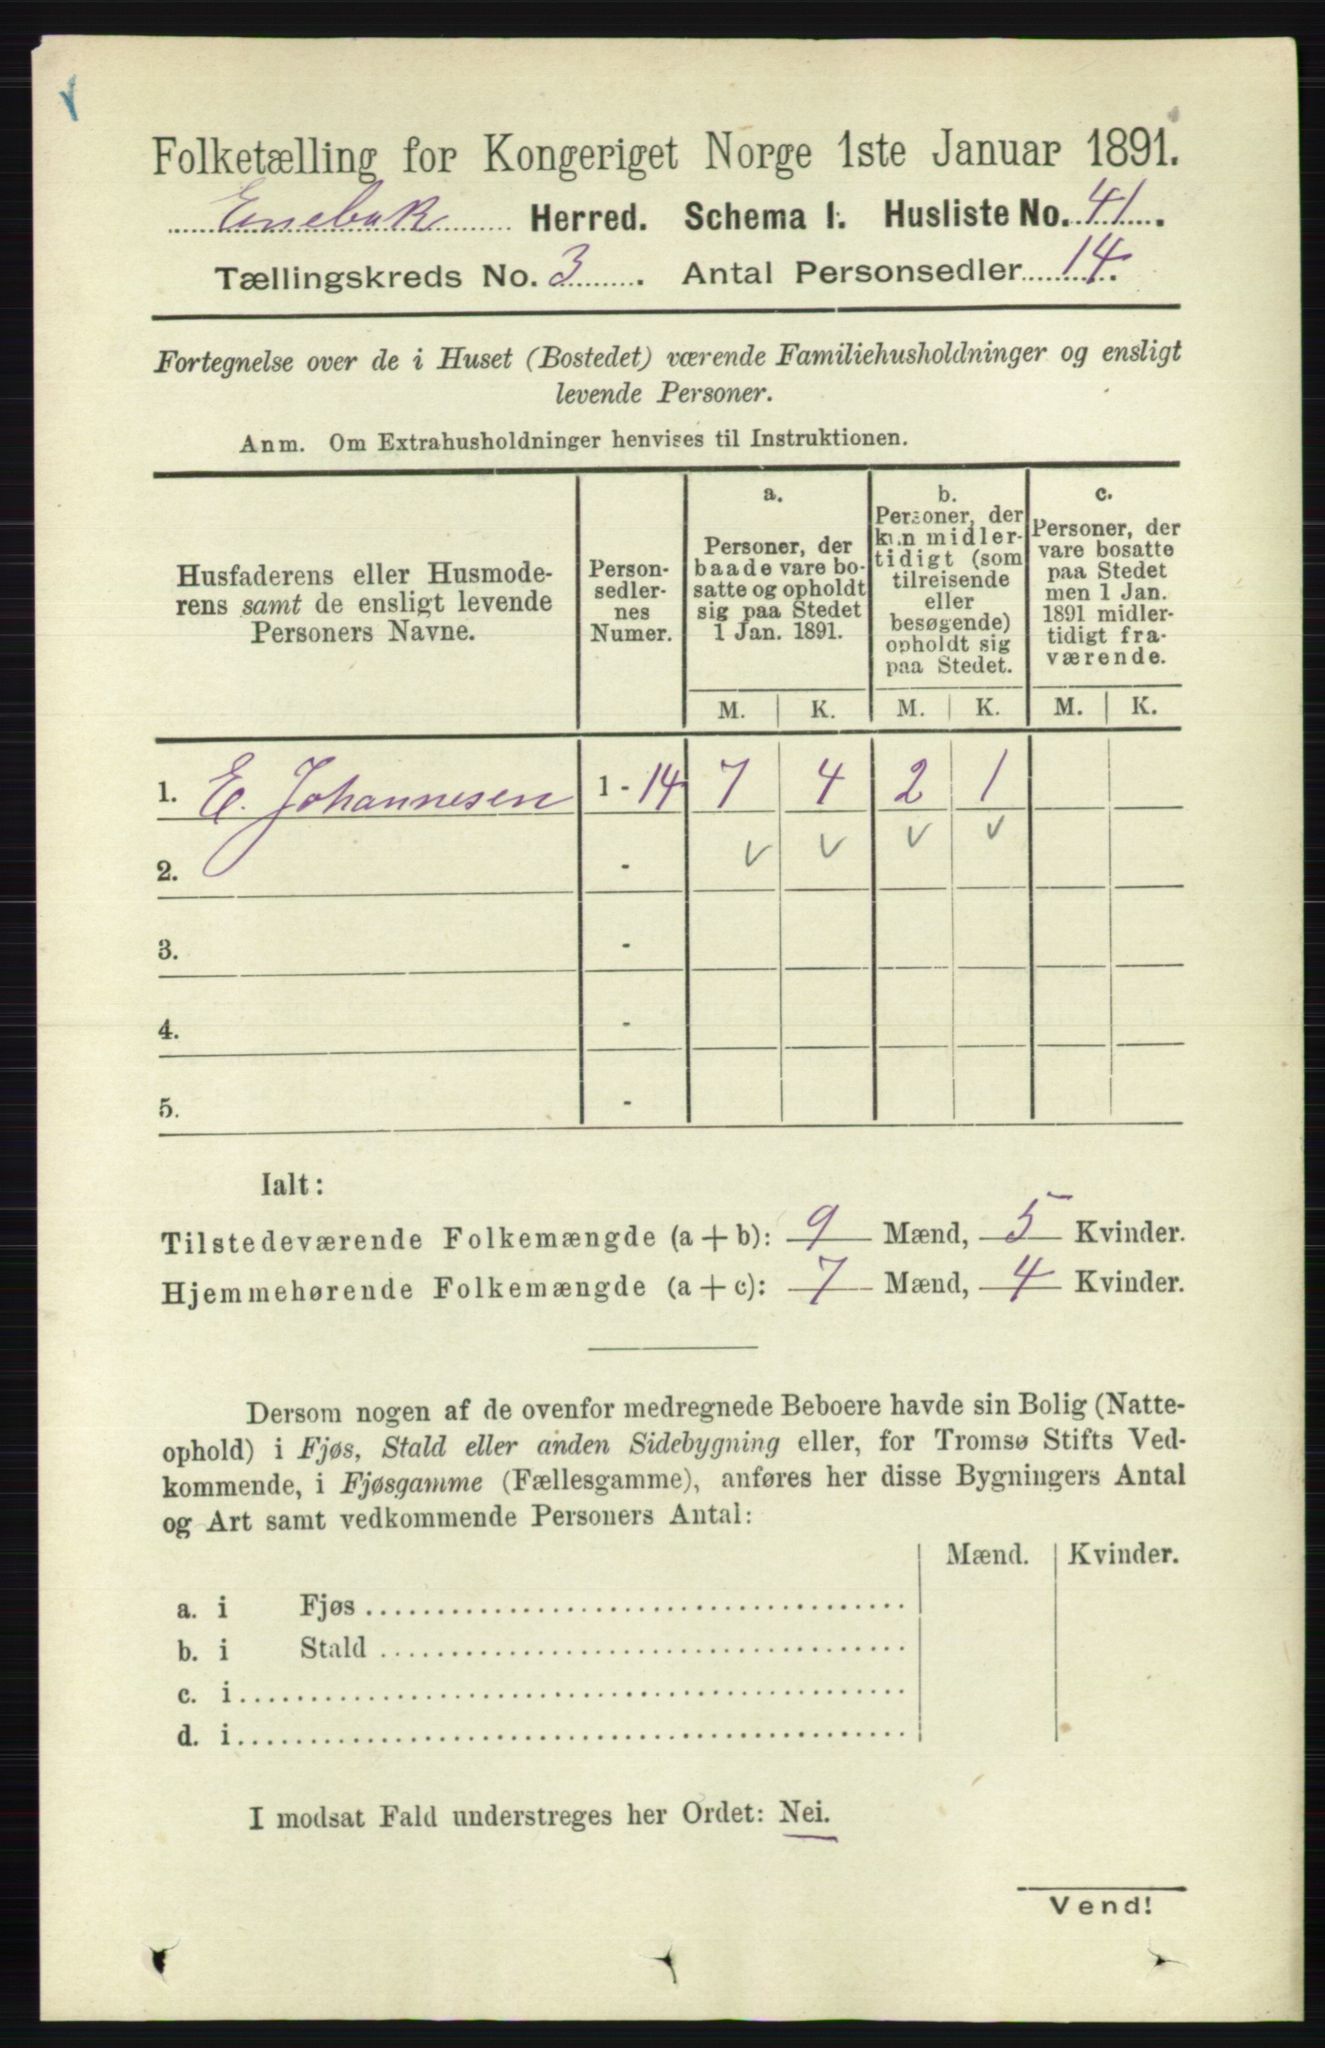 Folketælling for Kongeriget Norge 1ste Januar 1891.
Enebak Herred. Schema I. Husliste No. 41.
Tællingskreds No. 3. Antal Personsedler 14.
Fortegnelse over de i Huset (Bostedet) værende Familiehusholdninger og ensligt
levende Personer.
Anm. Om Extrahusholdninger henvises til Instruktionen.
Husfaderens eller Husmode-
rens samt de ensligt levende
Personers Navne.
Person-
sedler-
nes
Numer.
a.
Personer, der
baade vare bo-
satte og opholdt
sig paa Stedet
1 Jan. 1891.
b.
Personer, der
kun midler-
tidigt (som
tilreisende
eller
besøgende)
opholdt sig
paa Stedet.
c.
Personer, der
vare bosatte
paa Stedet
men 1 Jan.
1891 midler-
tidigt fra-
værende.
M. K. M. K. M. K.
1. E. Johannesen 1 - 14 7 4 2 1
2. - v v v v
3. -
4. -
5. -
Ialt:
Tilstedeværende Folkemængde (a + b): 9 Mænd, 5 Kvinder.
Hjemmehørende Folkemængde (a + c): 7 Mænd, 4 Kvinder.
Dersom nogen af de ovenfor medregnede Beboere havde sin Bolig (Natte-
ophold) i Fjøs, Stald eller anden Sidebygning eller, for Tromsø Stifts Ved-
kommende, i Fjøsgamme (Fællesgamme), anføres her disse Bygningers Antal
og Art samt vedkommende Personers Antal:
Mænd. Kvinder.
a. i Fjøs
b. i Stald
c. i
d. i
I modsat Fald understreges her Ordet: Nei.
Vend!